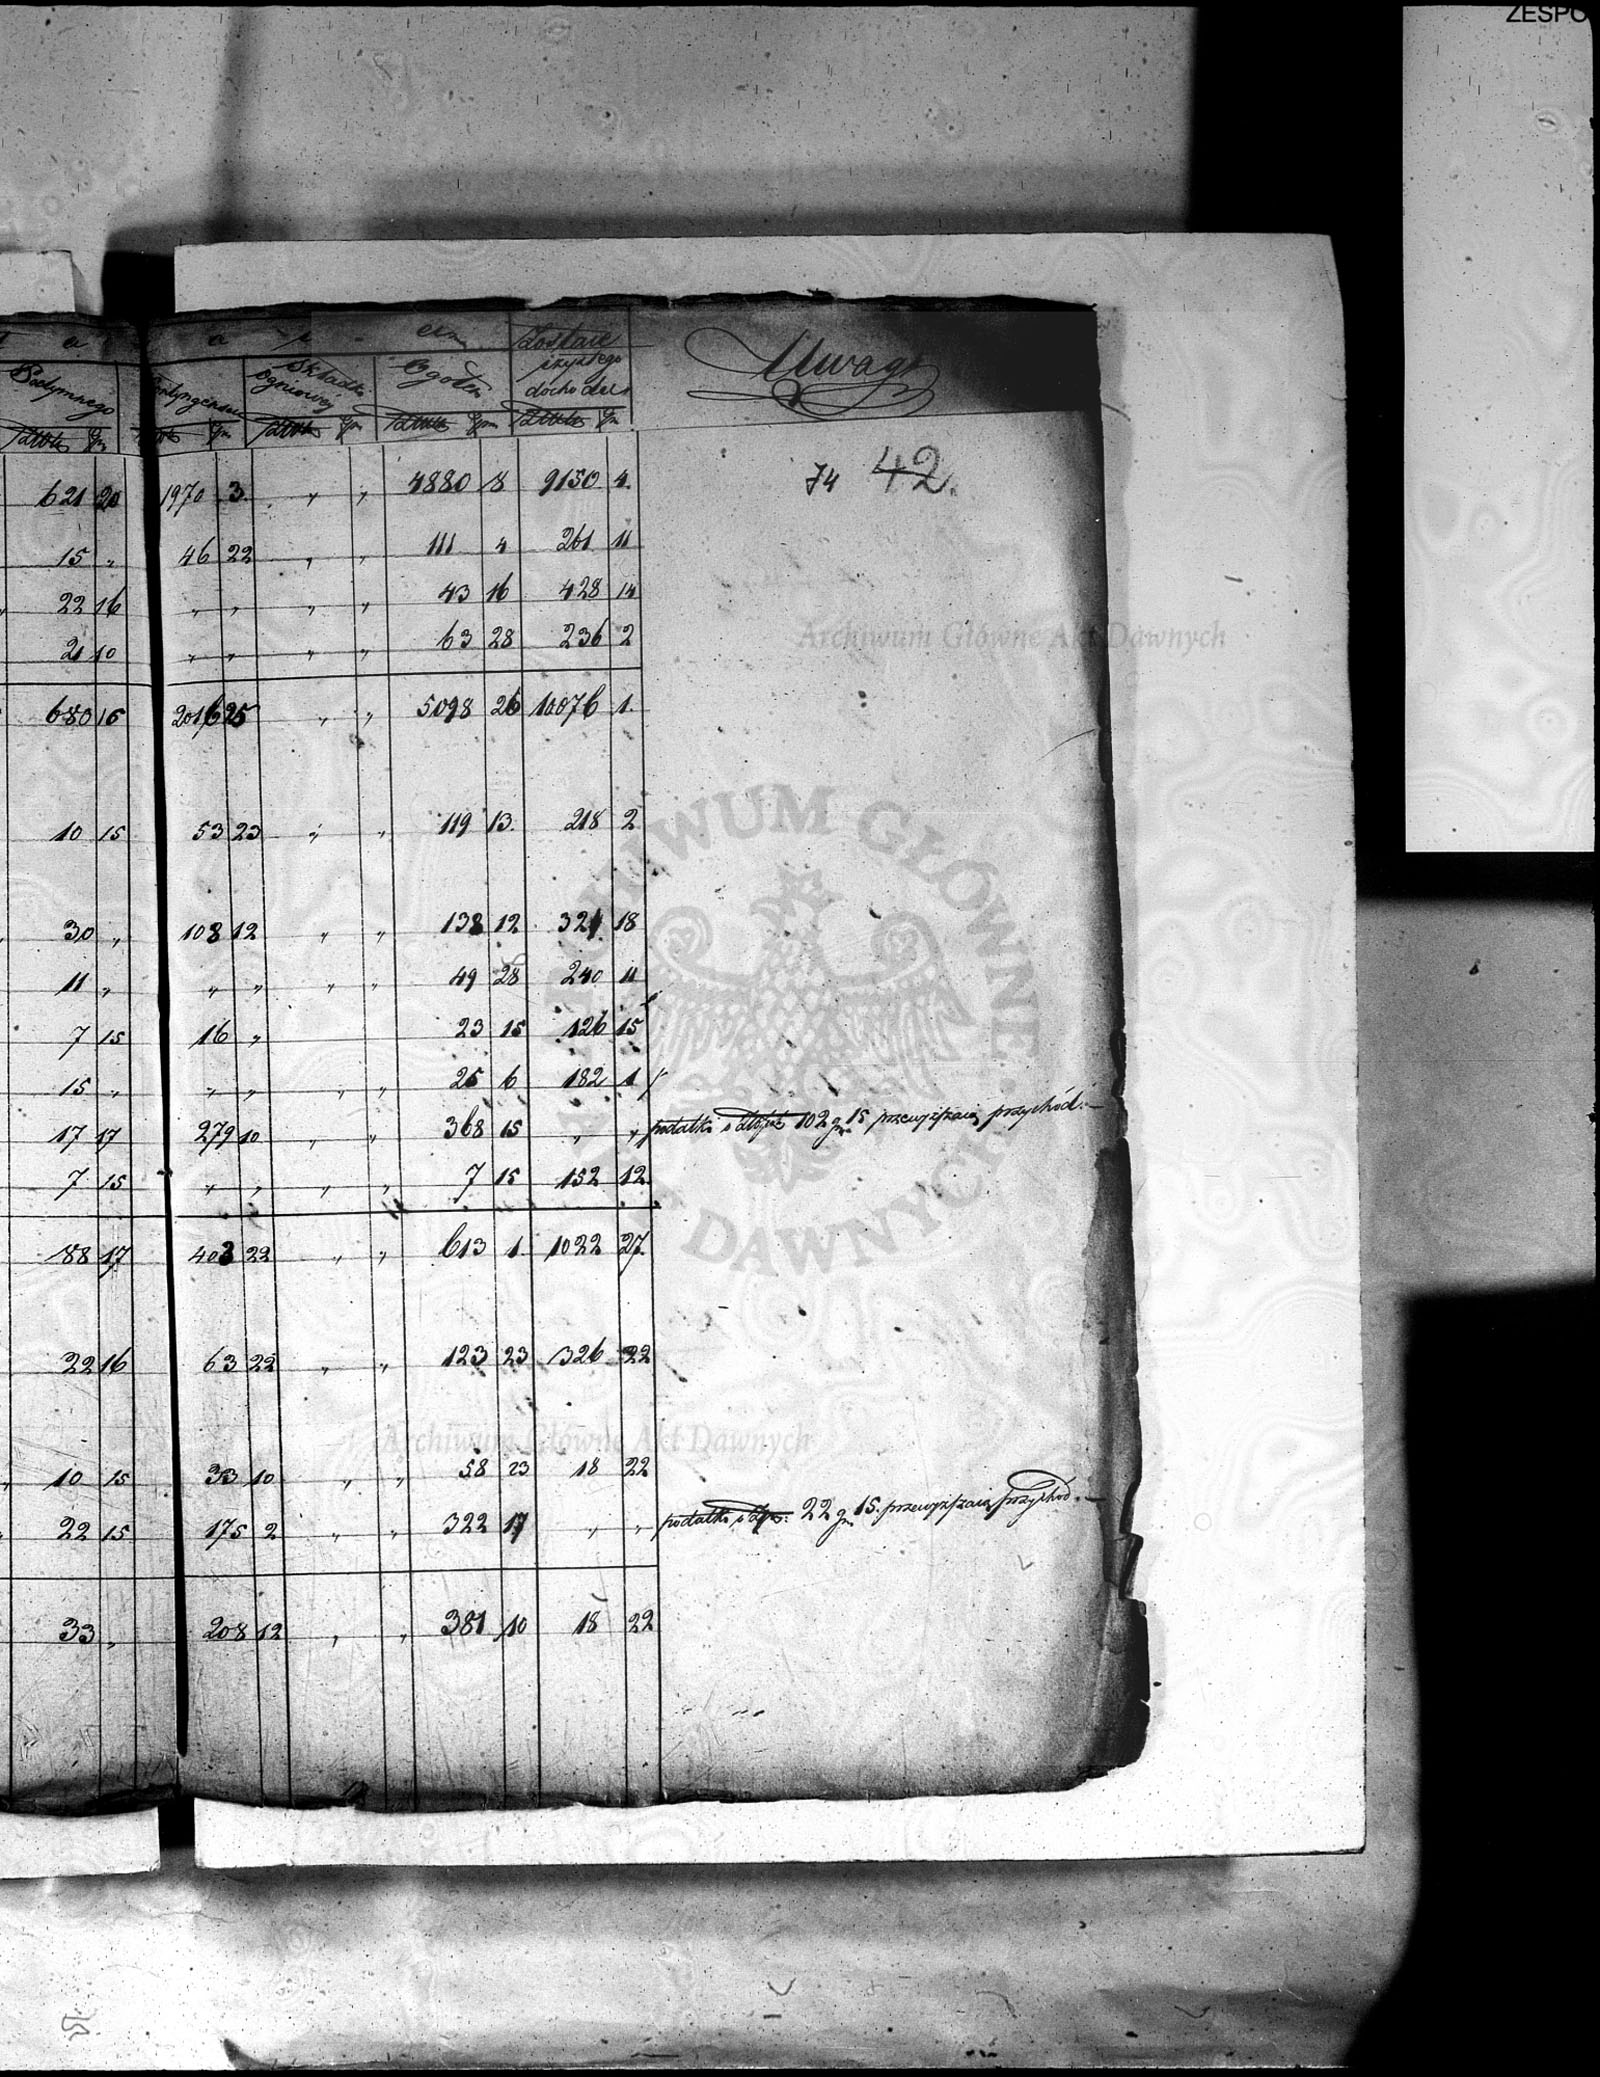 ZESPO
a a
Zostaie
Podymnego Kontyngensu Składki Ogniowej Ogołem iżystego dochodu Uwagi
Złote gr Złote gr Złote gr Złote gr Złote gr
74 42.
621 20 1970 3 " " 4880 8 9150 4.
15 " 46 22 " " 111 4 261 11
22 16 " " " " 43 16 428 14
21 10 " " " " 63 28 236 2
Archiwum Główne Akt Dawnych
680 16 2016 25 " " 5098 26 10076 1.
10 15 53 23 " " 119 13. 218 2
ARCHIWUM GŁÓWNE AKT DAWNYCH
30 " 108 12 " " 138 12 321 18
11 " " " " " 49 28 240 11
7 15 16 " 23 15 126 15
15 " " " " " 25 6 182 1
17 17 279 10 " " 368 15 " " podatki o złotych 102 gr. 15 przewyższaią przychód.—
7 15 " " " " 7 15 152 12.
88 17 403 22 " " 613 1. 1022 27.
22 16 63 22 " " 123 23 326 22
Archiwum Główne Akt Dawnych
10 15 33 10 " " 58 23 18 22
22 15 175 2 " " 322 17 " " podatki o złp: 22 gr. 15. przewyższaią przychod.—
33 " 208 12 " " 381 10 18 22